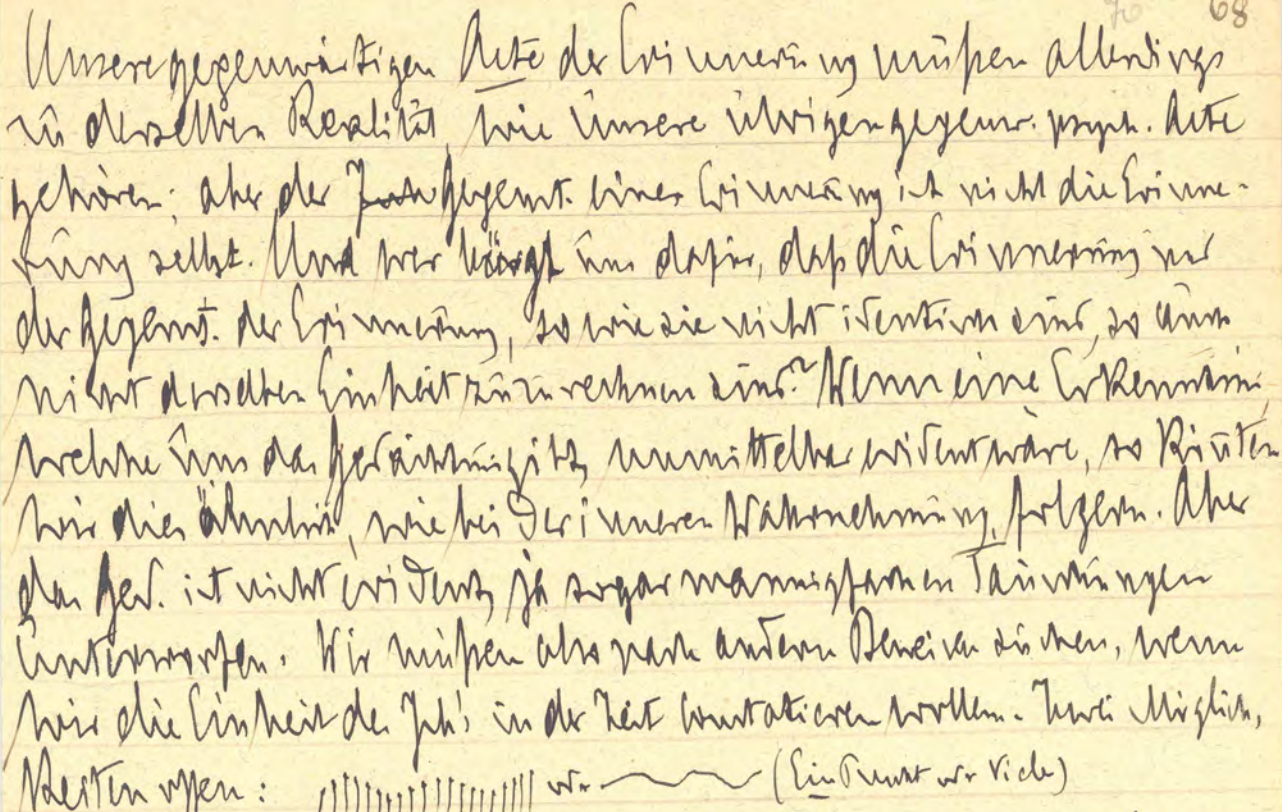 70 68
Unsere gegenwärtigen Acte der Erinnerung müßen allerdings
zu derselben Realität, wie unsere übrigen gegenw. psych. Acte
gehören; aber der Gegenst. einer Erinnerung ist nicht die Erinne-
rung selbst. Und wer bürgt uns dafür, daß die Erinnerung und
der Gegenst. der Erinnerung, so wie sie nicht identisch sind, so auch
nicht derselben Einheit zuzurechnen sind? Wenn eine Erkenntnis
welche uns das Gedächtniß gibt, unmittelbar evident wäre, so könnten
wir dies ähnlich, wie bei der inneren Wahrnehmung, folgern. Aber
das Ged. ist nicht evident, ja sogar mannigfachen Täuschungen
unterworfen. Wir müßen also nach andern Beweisen suchen, wenn
wir die Einheit des Ich's in der Zeit constatieren wollen. Zwei Möglich,
keiten offen: oder (Ein Punkt oder Viele)